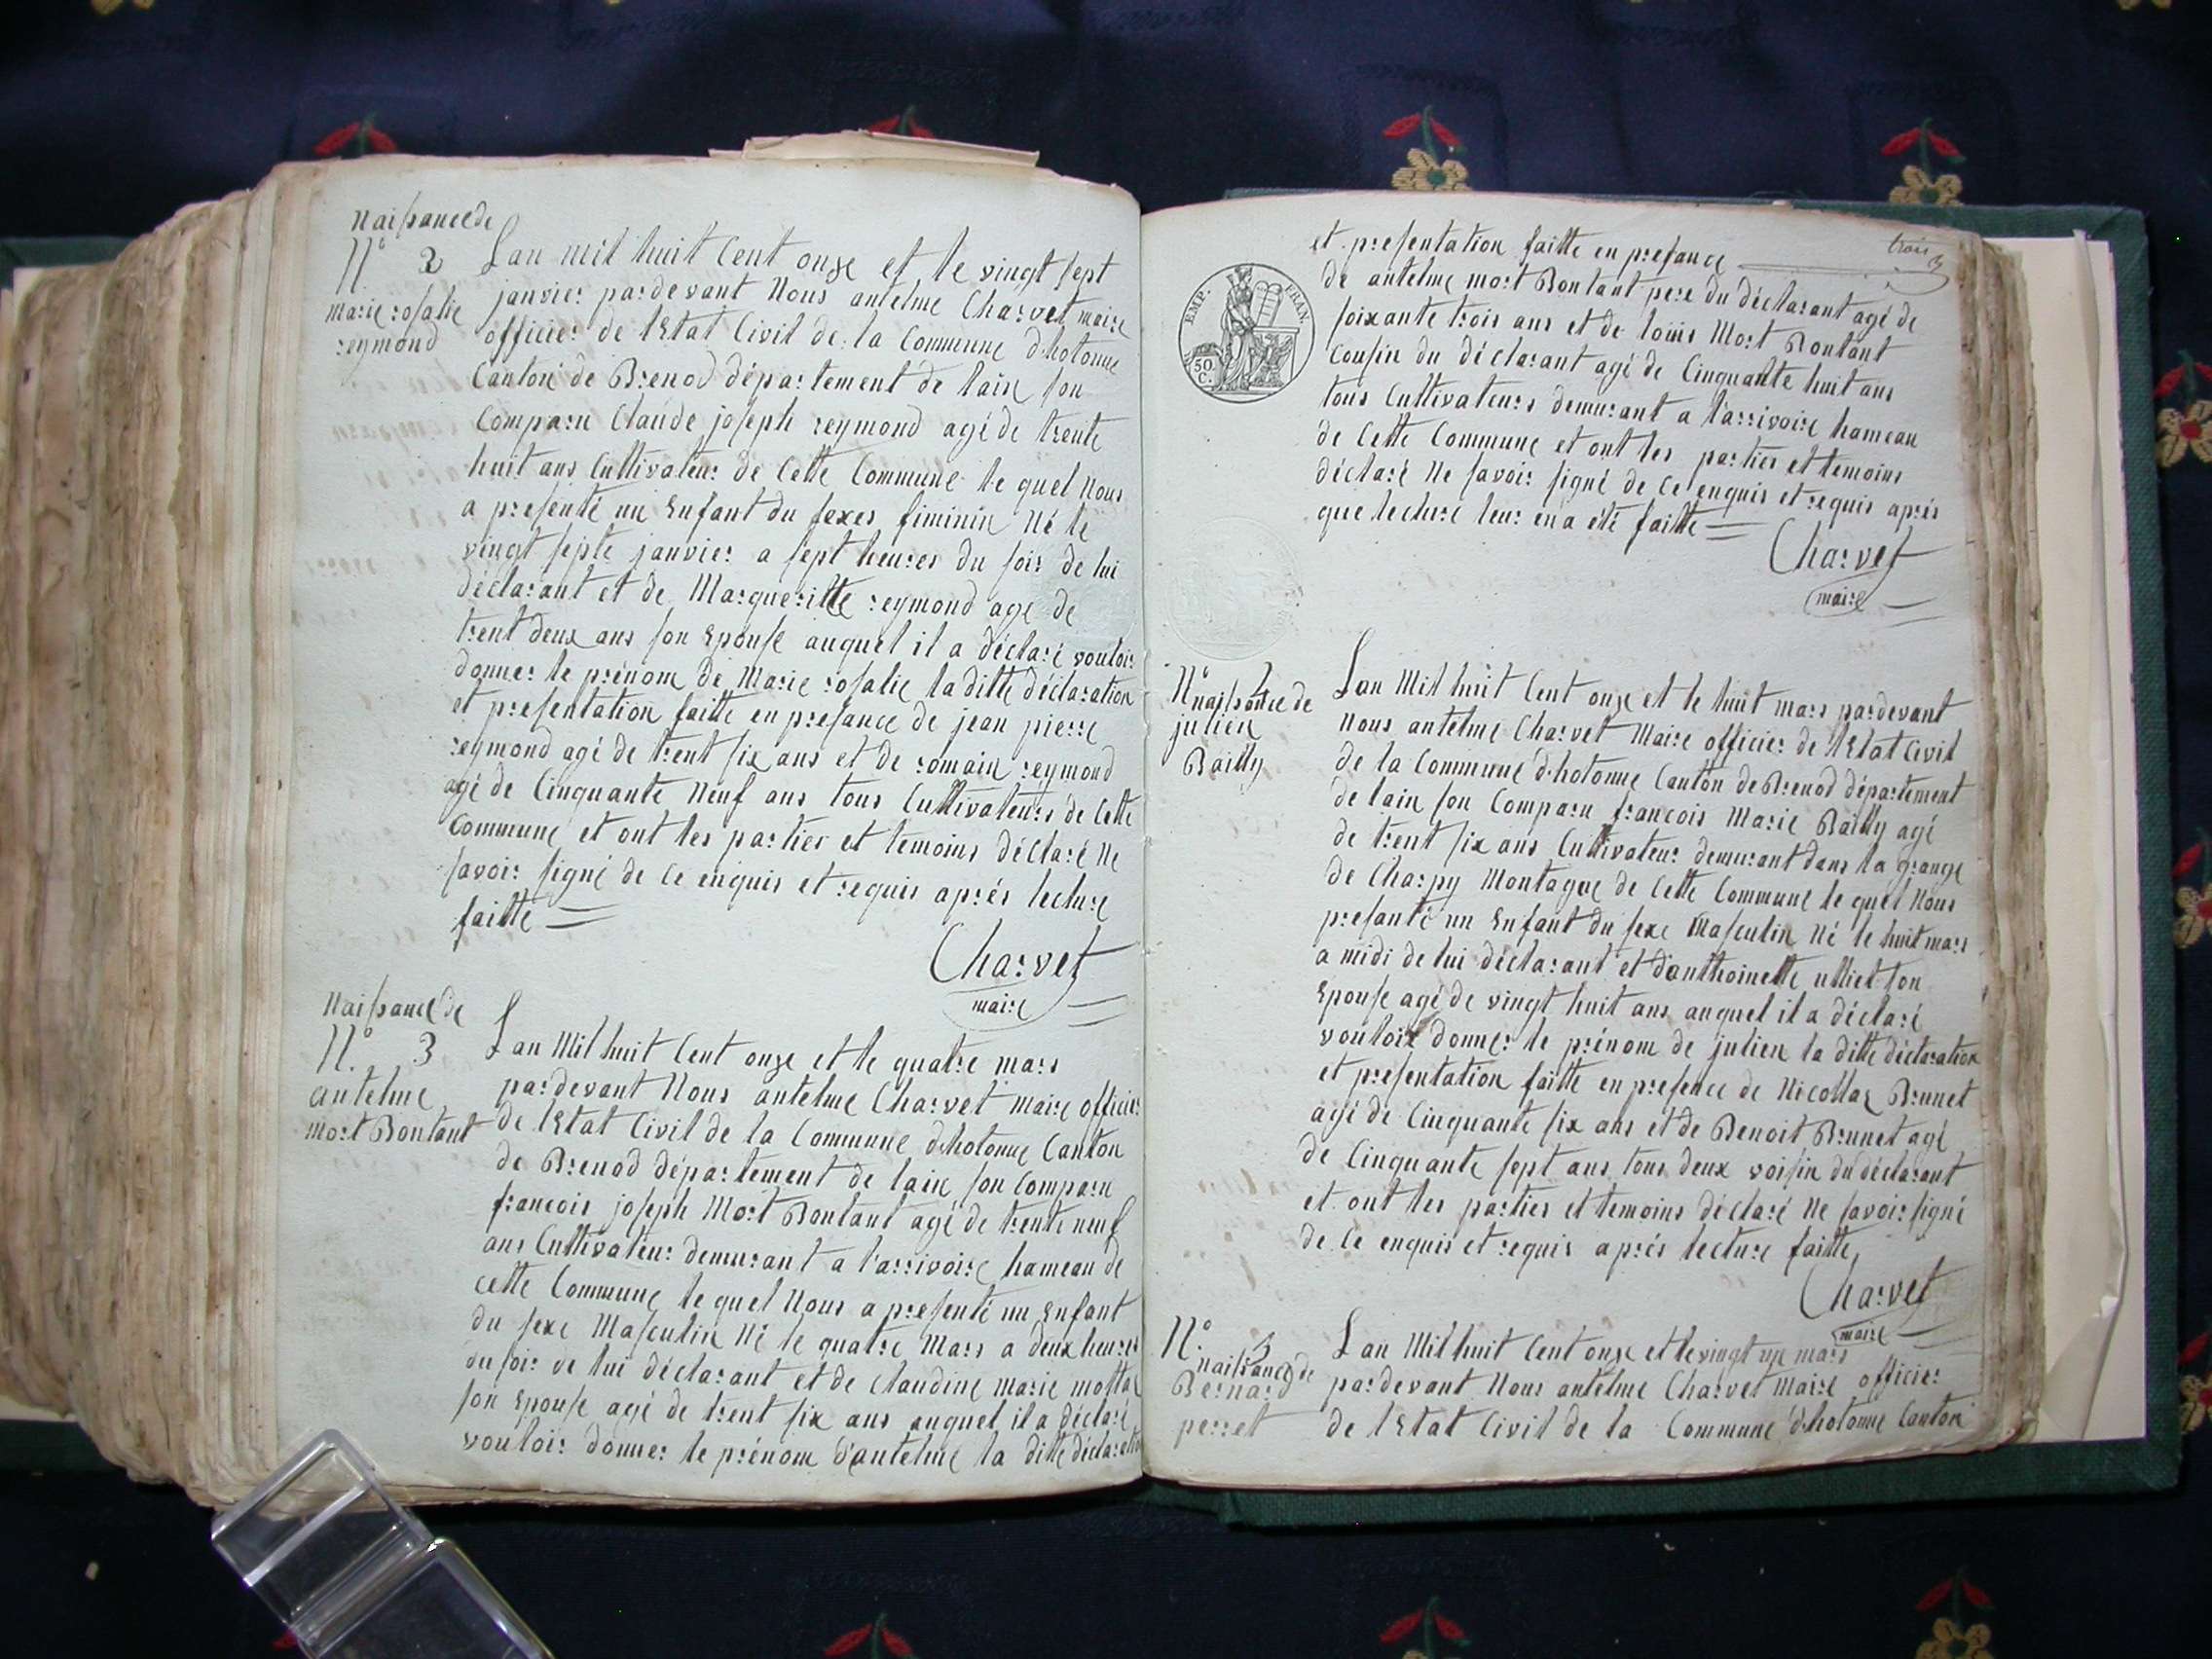 Naissance de
N.° 2
marie rosalie
reymond
Lan mil huit Cent onze et le vingt sept
janvier pardevant Nous antelme Charvet maire
officier de lEtat Civil de la Commune d'hotonne
Canton de Brenod département de lain son
Comparu Claude joseph reymond agé de trente
huit ans Cultivateur de Cette Commune le quel Nous
a presenté un Enfant du sexes féminin Né le
vingt septe janvier a sept heures du soir de lui
déclarant et de Margueritte reymond age de
trent deux ans son Epouse auquel il a déclaré vouloir
donner le prénom de Marie rosalie la ditte déclaration
et presentation faitte en presance de jean pierre
reymond agé de trent six ans et de romain reymond
agé de Cinquante Neuf ans tous Cultivateurs de Cette
Commune et ont les parties et temoins déclaré Ne
savoir signé de ce enquis et requis aprés lecture
faitte
Charvet
maire
Naissance de
N.° 3
antelme
mort Bontant
Lan Mil huit Cent onze et le quatre mars
pardevant Nous antelme Charvet maire officier
de lEtat Civil de la Commune d'hotonne Canton
de Brenod département de lain son Comparu
francois joseph Mort Bontant agé de trente neuf
ans Cultivateur demurant a l'arrivoire hameau de
cette Commune le quel Nous a presenté un Enfant
du sexe Masculin Né le quatre Mars a deux heures
du soir de lui déclarant et de Claudine marie
son Epouse agé de trent six ans auquel il a déclaré
vouloir donner le prénom d'antelme la ditte déclaration
trois
3
et presentation faitte en presance
de antelme mort Bontant pere du déclarant agé de
soixante trois ans et de louis Mort Bontant
cousin du déclarant agé de Cinquante huit ans
tous Cultivateurs demurant a larrivoire hameau
de Cette Commune et ont les parties et temoins
déclaré Ne savoir signé de ce enquis et requis aprés
que lecture leur en a été faitte
EMP. FRAN.
50. C.
Charvet
maire
N°
naissance de
julien
Bailly
Lan Mil huit Cent onze et le huit mars pardevant
Nous antelme Charvet Maire officier de lEtat Civil
de la Commune d'hotonne Canton de Brenod département
de lain son Comparu francois Marie Bailly agé
de trent six ans Cultivateur demurant dans la grange
de Charpy Montagne de Cette Commune le quel Nous
presanté un Enfant du sexe Masculin Né le huit mars
a midi de lui déclarant et d'anthoinette son
Epouse agé de vingt huit ans auquel il a déclaré
vouloir donner le prénom de julien la ditte déclaration
et presentation faitte en presence de Nicollas Brunet
agé de Cinquante six ans et de Benoit Brunet agé
de Cinquante sept ans tous deux voisin du déclarant
et ont les parties et temoins déclaré Ne savoir signé
de Ce enquis et requis aprés lecture faitte
Charvet
maire
N.°
naissance de
Bernard
perret
Lan Mil huit Cent onze et le vingt un mars
pardevant Nous antelme Charvet Maire officier
de lEtat Civil de la Commune d'hotonne Canton